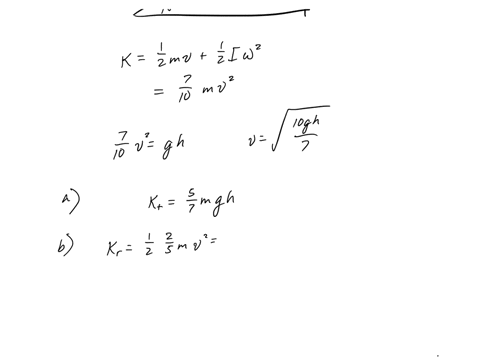 K = 1/2 mv + 1/2 I ω²
= 7/10 mv²
7/10 v² = gh v = √(10gh/7)
a) K₊ = 5/7 mgh
b) Kᵣ = 1/2 2/5 m v² =